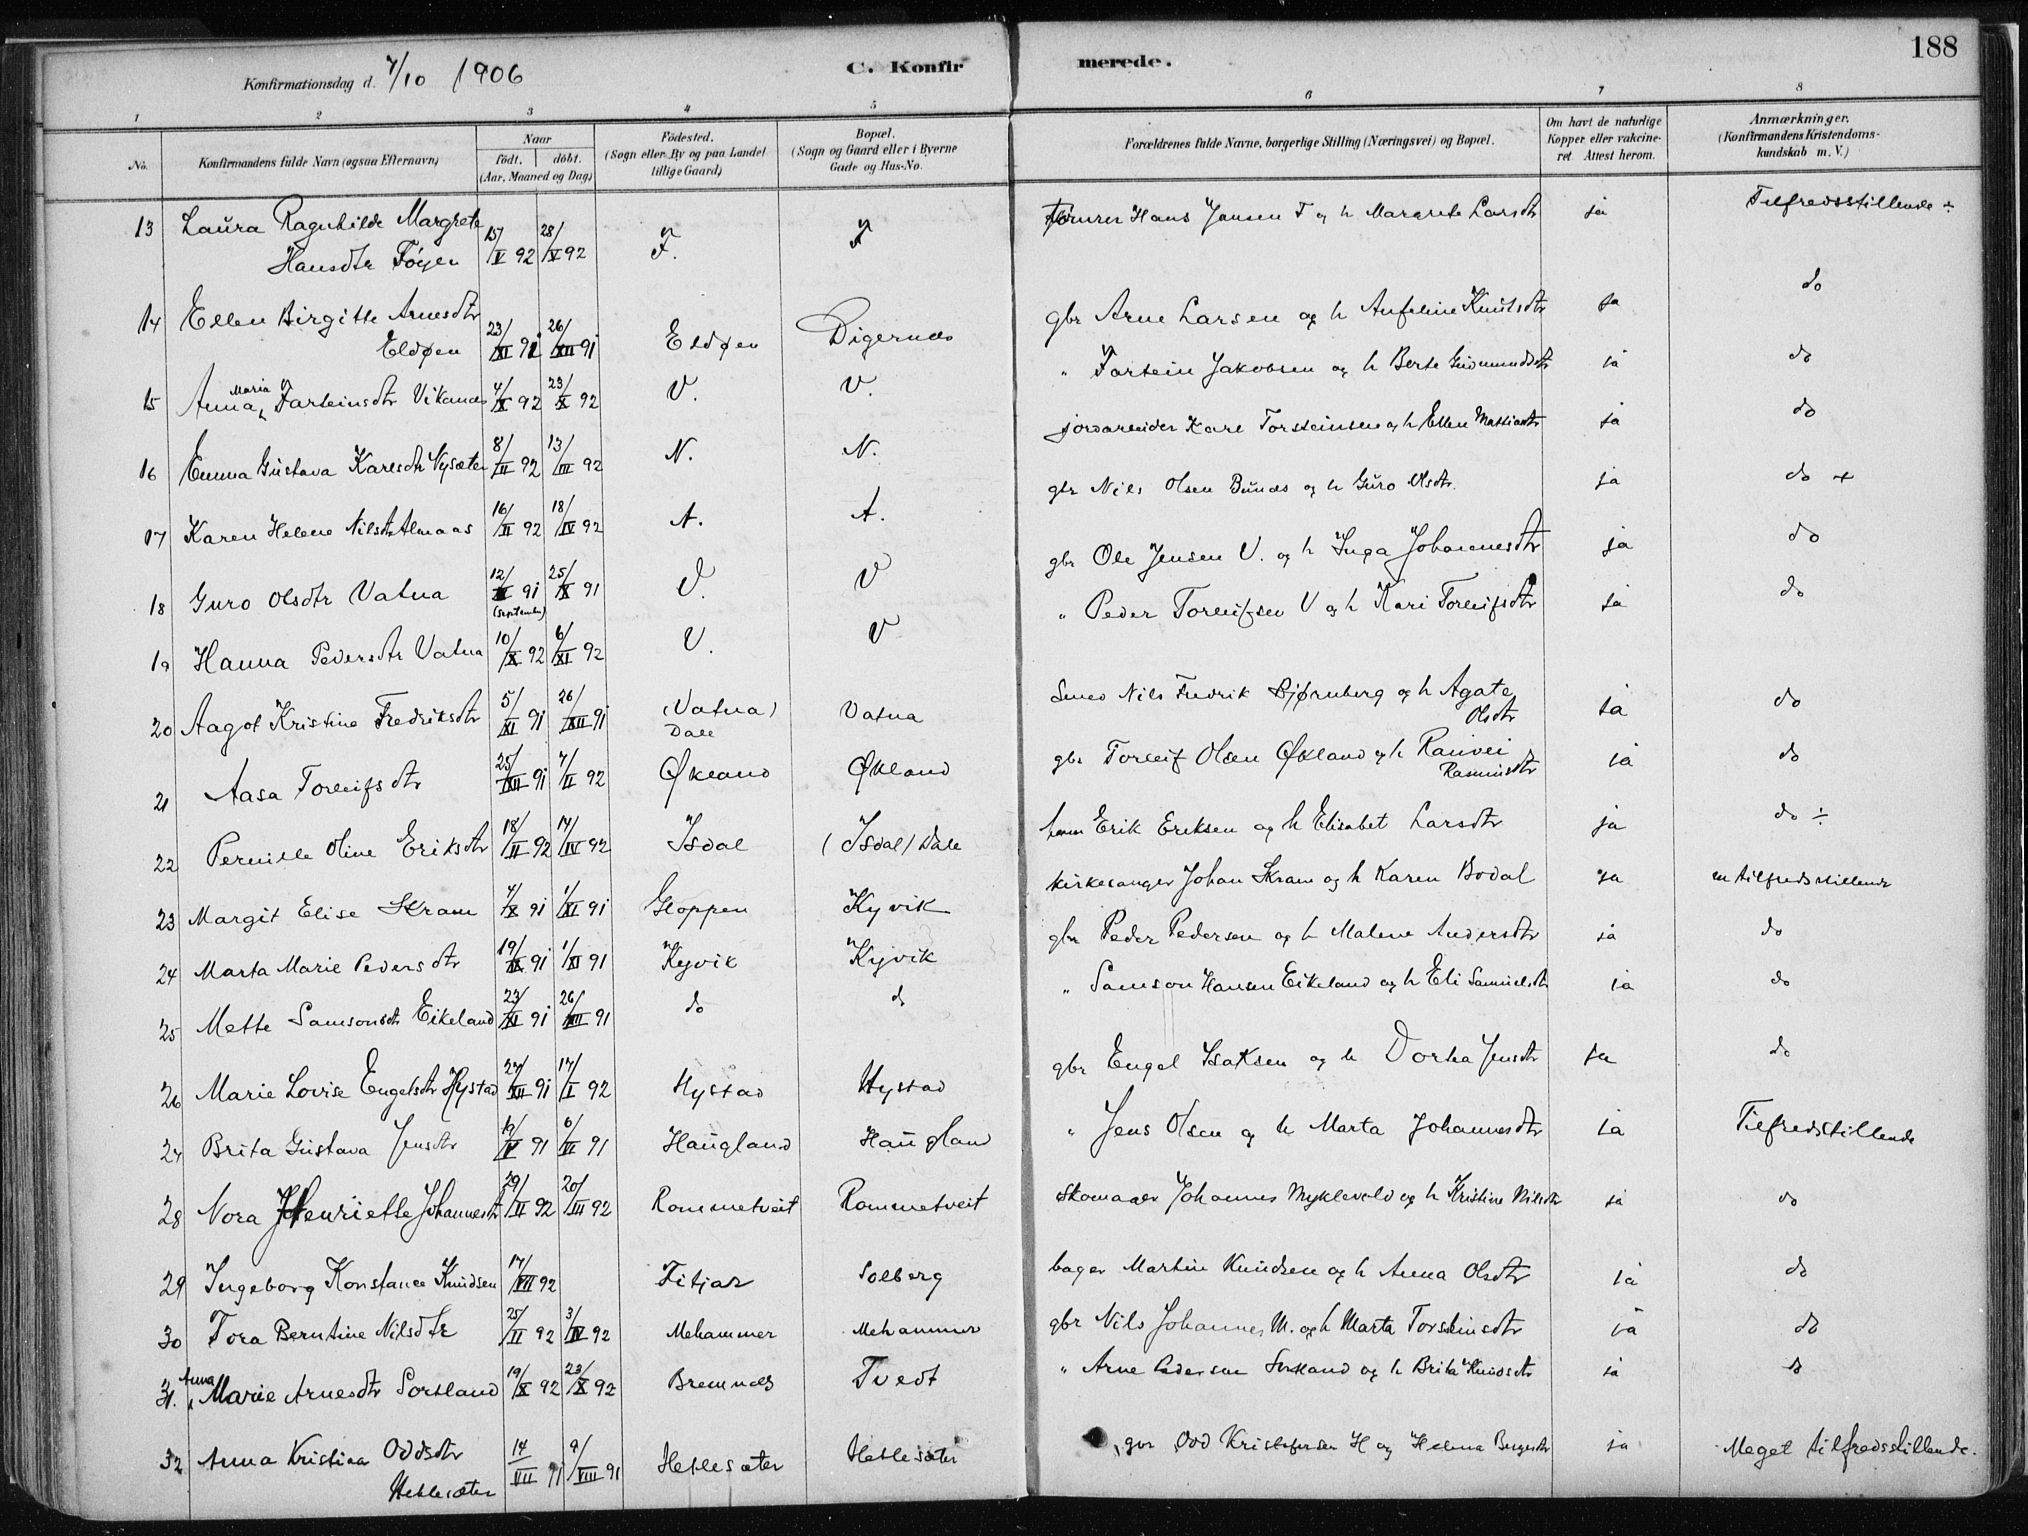 188
Konfirmationsdag d. 7/10 1906
C. Konfirmerede.
1 2 3 4 5 6 7 8
No. Konfirmandens fulde Navn (ogsaa Efternavn) Naar født. døbt. (Aar, Maaned og Dag) Fødested. (Sogn eller By og paa Landet tillige Gaard) Bopæl. (Sogn og Gaard eller i Byerne Gade og Hus-No. Forældrenes fulde Navne, borgerlige Stilling (Næringsvei) og Bopæl. Om havt de naturlige Kopper eller vakcineret Attest herom. Anmærkninger. (Konfirmandens Kristendomskundskab m. V.)
13 Laura Ragnhilde Margrete Hansdtr Føyen 15/V 92 28/V 92 F. F Hans Jensen F og h Margrete Larsdtr ja Tilfredsstillende ÷
14 Ellen Birgitte Arnesdtr Eldøen 23/XI 91 26/XII 91 Eldøen Digernes gbr Arne Larsen og h Knutsdtr ja do
15 Anna Maria Farteinsdtr Vikanes 4/X 92 23/X 92 V. V. " Fartein Jakobsen og h Berte Gudmundsdtr ja do
16 Emma Gustava Karlsdtr Nysæter 8/II 92 13/III 92 N. N. jordarbeider Karl Torsteinsen og h Ellen Mattiasdtr ja do
17 Karen Helene Nilsdtr Almaas 16/II 92 18/IV 92 A. A. gbr Nils Olsen Bunes og h Guro Olsdtr. ja do +
18 Guro Olsdtr Vatna 12/IX 91 (September) 25/X 91 V. V gbr Ole Jensen V. og h Inga Johannesdtr ja do
19 Hanna Pedersdtr Vatna 10/X 92 6/XI 92 V. V " Peder Torleifsen V og h Kari Torleifsdtr ja do
20 Aagot Kristine Fredriksdtr 5/XI 91 26/XII 91 (Vatna) Dale Vatna Smed Nils Fredrik Bjørnberg og h Agate Olsdtr ja do
21 Aasa Torleifsdtr 25/XII 91 7/II 92 Økland Økland gbr Torleif Olsen Økland og h Ranvei Rasmusdtr ja do
22 Pernille Oline Eriksdtr 18/II 92 17/IV 92 Isdal (Isdal) Dale Erik Eriksen og h Elisabet Larsdtr ja do ÷
23 Margit Elise Skram 7/X 91 1/XI 91 Gloppen Kyvik kirkesanger Johan Skram og h Karen Bodal ja tilfredsstillende
24 Marta Marie Pedersdtr 19/IX 91 1/XI 91 Kyvik Kyvik gbr Peder Pedersen og h Malene Andersdtr ja do
25 Mette Samsonsdtr Eikeland 23/XI 91 26/XII 91 do do " Samson Hansen Eikeland og h Eli Samuelsdtr ja do
26 Marie Lovise Engelsdtr Hystad 27/XII 91 17/I 92 Hystad Hystad gbr Engel Isaksen og h Dorthea Jensdtr ja do
27 Brita Gustava Jensdtr 19/V 91 6/VI 91 Haugland Haugland " Jens Olsen og h Marta Johannesdtr ja Tilfredstillende
28 Nora Henriette Johannesdtr 29/II 92 20/III 92 Rommetveit Rommetveit Skomager Johannes Myklevold og h Kristine Nilsdtr ja do
29 Ingeborg Konstance Knudsen 17/VII 92 Fitjar Solberg bager Martin Knudsen og h Anna Olsdtr ja do
30 Tora Berntine Nilsdtr 25/II 92 3/IV 92 Mehammer Mehammer gbr Nils Johannes M. og h Marta Torsteinsdtr ja do
31. Anna Marie Arnesdtr Sortland 19/X 92 23/X 92 Bremnes Tvedt " Arne Pedersen Sortland og h Brita Knudsdtr ja do
32 Anna Kristine Oddsdtr Hetlesæter 14/VII 91 9/VIII 91 Hetlesæter Hetlesæter gbr Odd Kristofersen H og Helena ja Meget tilfredsstillende.